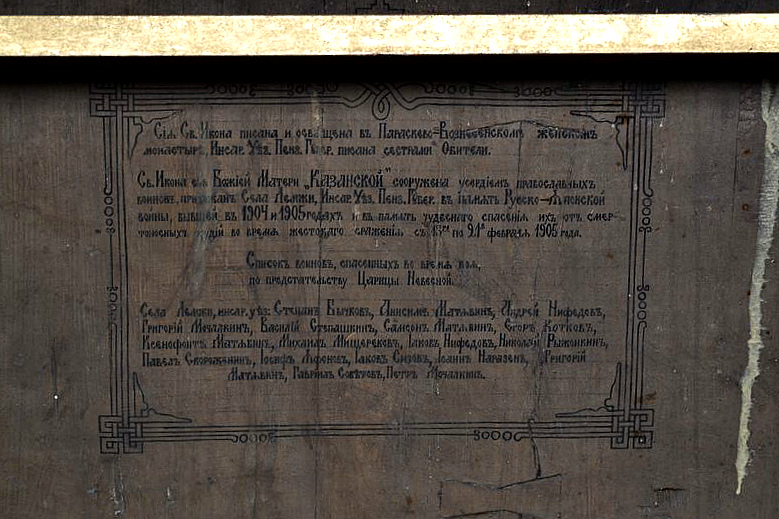 Сія Св. Икона писана и освящена въ Параскево=Вознесенскомъ женскомъ
монастырѣ, Инсар. Уѣз. Пенз. Губер. писана сестрами Обители.
Св. Икона сія Божіей Матери „Казанской" сооружена усердіемъ православныхъ
воиновъ, прихожанъ Села Лемжи, Инсар. Уѣз. Пенз. Губер. въ память Русско-Японской
войны, бывшей въ 1904 и 1905 годахъ и въ память чудеснаго спасенія ихъ отъ смер-
тоносныхъ орудій во время жестокаго сраженія съ по февраля 1905 года.
Списокъ воиновъ, спасенныхъ во время боя,
по предстательству Царицы Небесной.
Села Лемжи, инсар. уѣз: Степанъ Бычковъ, Анисимъ Матявинъ, Андрей Нифедовъ,
Григорій Мочалкинъ, Василій Степашкинъ, Самсонъ Матявинъ, Егоръ Котковъ,
Ксенофонтъ Матявинъ, Михаилъ Мищеряковъ, Іаковъ Нифедовъ, Николай Рыжонкинъ,
Павелъ Скороженинъ, Іосифъ Іаковъ Іоаннъ Григорій
Матявинъ, Гавріилъ Совѣтовъ, Петръ Мочалкинъ.